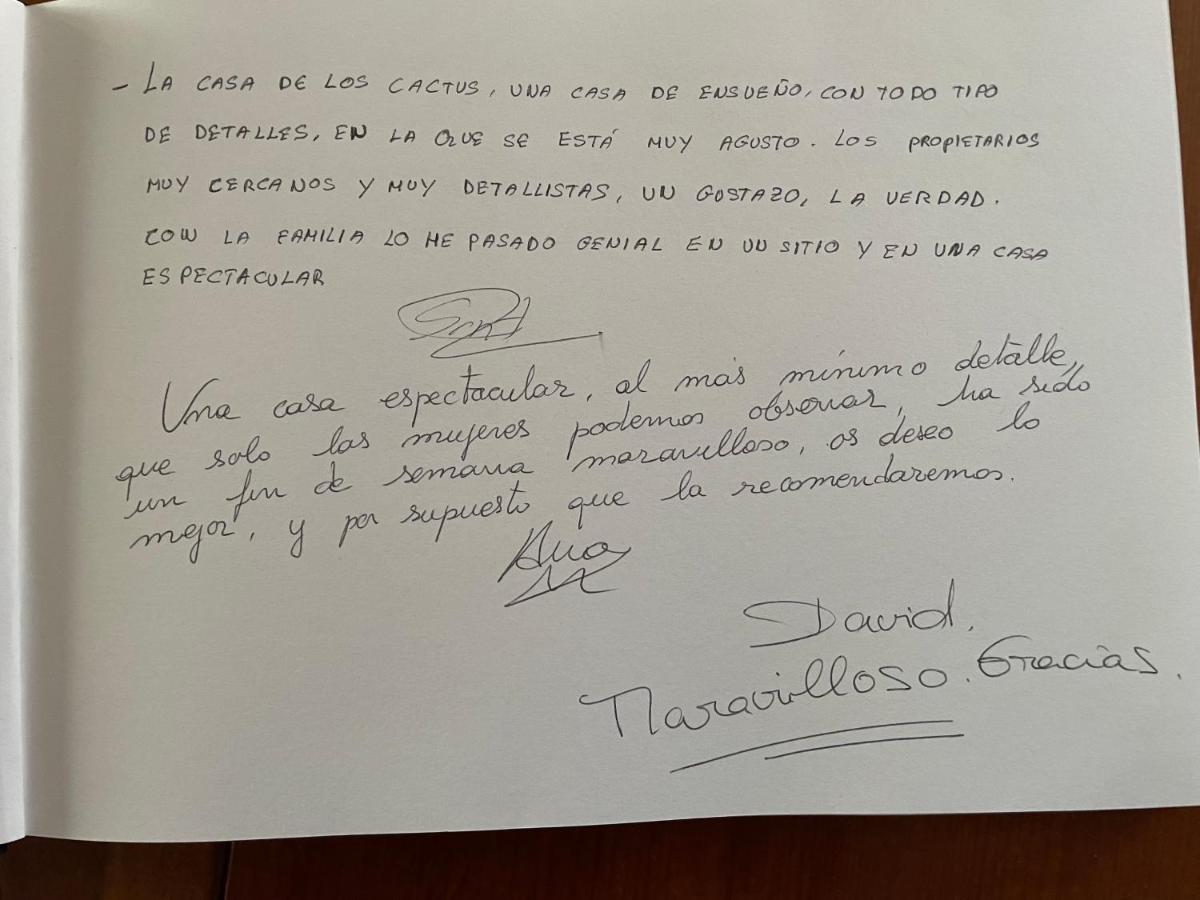 - LA CASA DE LOS CACTUS, UNA CASA DE ENSUEÑO, CON TODO TIPO
DE DETALLES, EN LA QUE SE ESTÁ MUY AGUSTO. LOS PROPIETARIOS
MUY CERCANOS Y MUY DETALLISTAS, UN GUSTAZO, LA VERDAD.
CON LA FAMILIA LO HE PASADO GENIAL EN UN SITIO Y EN UNA CASA
ESPECTACULAR
Una casa espectacular, al más mínimo detalle,
que solo las mujeres podemos observar, ha sido
un fin de semana maravilloso, os deseo lo
mejor, y por supuesto que la recomendaremos.
Ana
David.
Maravilloso. Gracias.